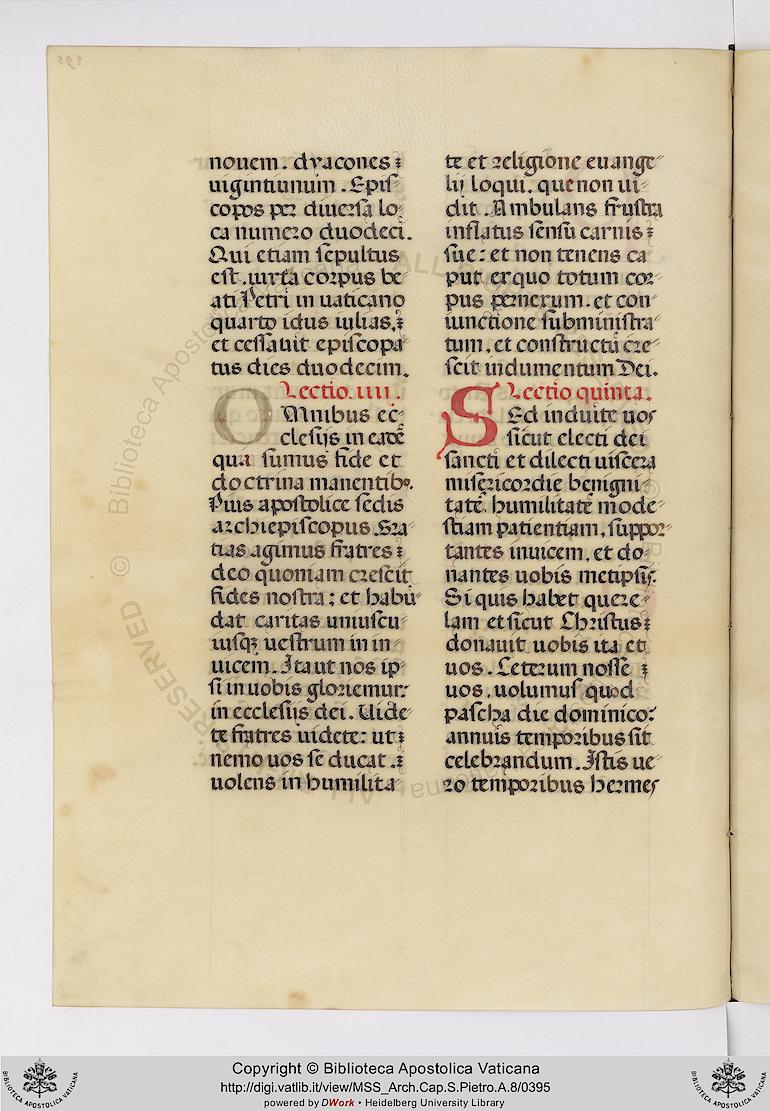 195
nouem. dyacones
uigintiunum. Epis
copos per diuersa lo
ca numero duodeci.
Qui etiam sepultus
est. iuxta corpus be
ati Petri in uaticano
quarto idus iulias.
et cessauit episcopa
tus dies duodecim.
Lectio. iiii.
OMnibus ec
clesijs in eadē
qua sumus fide et
doctrina manentibꝰ.
Pius apostolice sedis
archiepiscopus. Gra
tias agimus fratres
deo quoniam crescit
fides nostra; et habū
dat caritas uniuscu
iusqꝫ uestrum in in
uicem. Ita ut nos ip
si in uobis gloriemur:
in ecclesijs dei. Uide
te fratres uidete: ut
nemo uos seducat.
uolens in humilita
te et religione euange
lij loqui. que non ui
dit. Ambulans frustra
inflatus sensu carnis
sue: et non tenens ca
put ex quo totum cor
pus pernexum. et con
iunctione subministra
tum. et constructū cre
scit in dumentum Dei.
Lectio quinta.
SEd induite uos
sicut electi dei
sancti et dilecti uiscera
misericordie benigni
tatē. humilitatē mode
stiam patientiam. suppor
tantes inuicem. et do
nantes uobis metipsis.
Si quis habet quere
lam et sicut Christus
donauit uobis ita et
uos. Ceterum nosse
uos. uolumus quod
pascha die dominico:
annuis temporibus sit
celebrandum. Istis ue
ro temporibus hermes
© Biblioteca Apostolica Vaticana. ALL RIGHTS RESERVED
BIBLIOTECA APOSTOLICA VATICANA
Copyright © Biblioteca Apostolica Vaticana
http://digi.vatlib.it/view/MSS_Arch.Cap.S.Pietro.A.8/0395
powered by DWork • Heidelberg University Library
BIBLIOTECA APOSTOLICA VATICANA